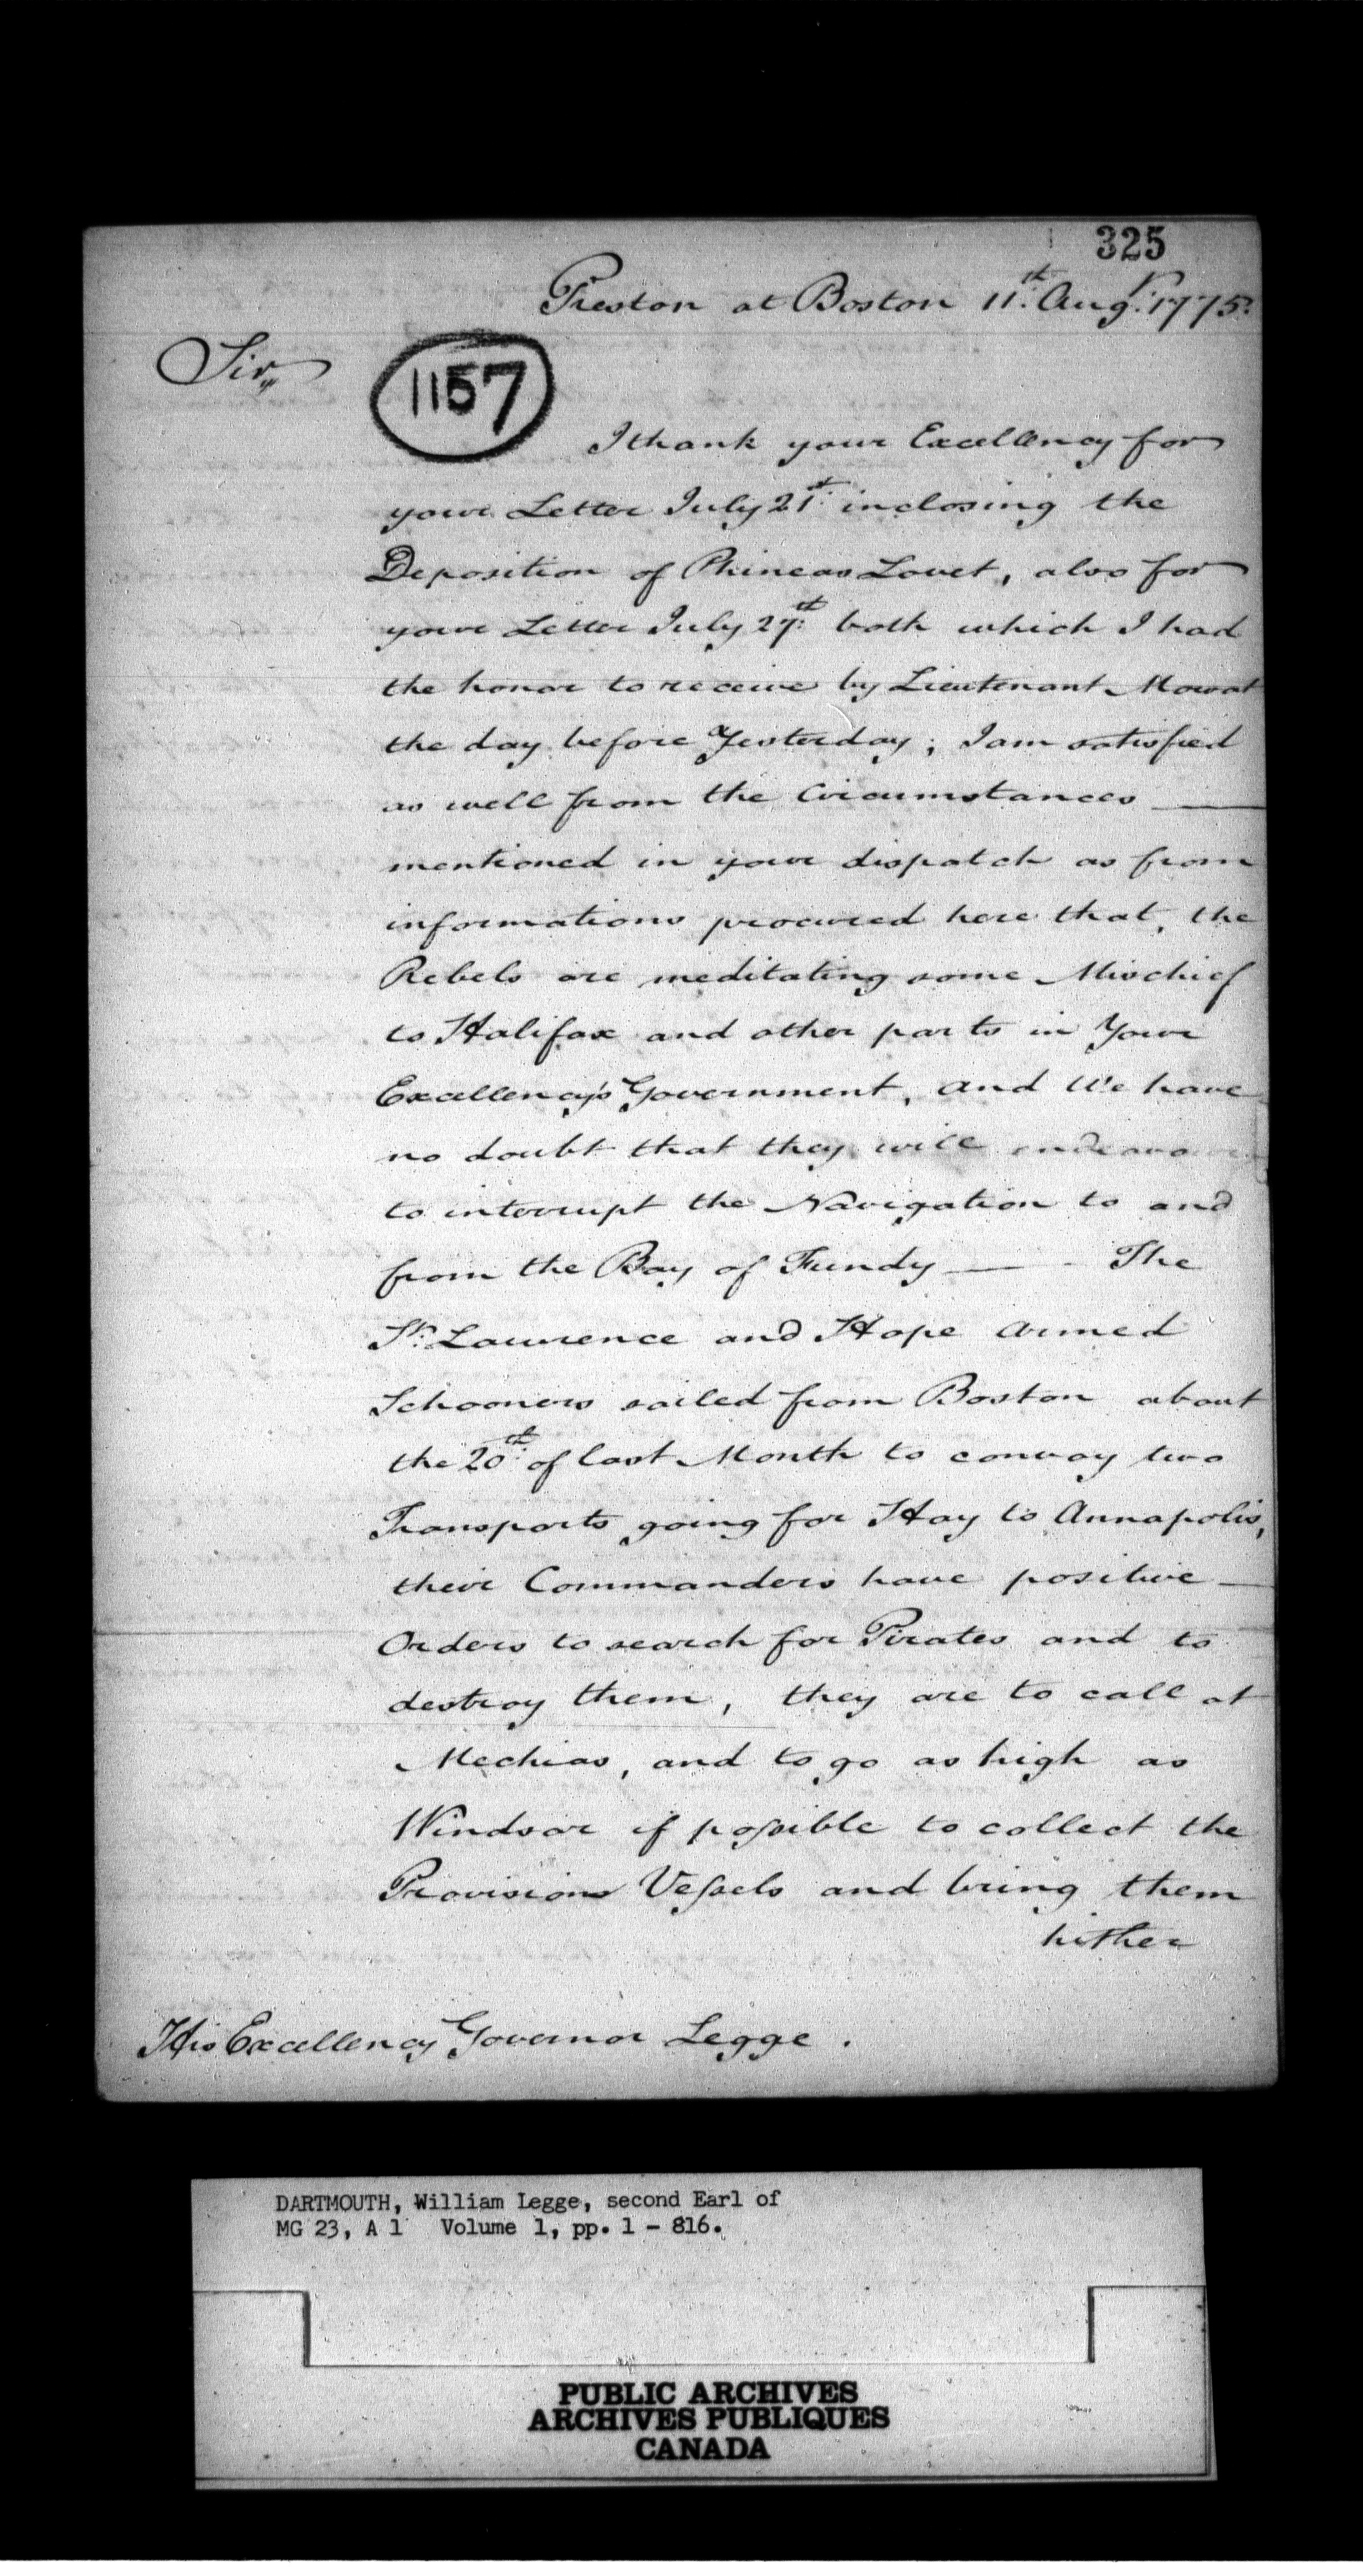 325
Preston at Boston 11th. Augt. 1775.
Sir,
1157
I thank your Excellency for
your Letter July 21st. inclosing the
Deposition of Phineas Lovet, also for
your Letter July 27th. both which I had
the honor to receive by Lieutenant Mowat
the day before Yesterday; I am satisfied
as well from the Circumstances —
mentioned in your dispatch as from
informations procured here that, the
Rebels are meditating some Mischief
to Halifax and other parts in Your
Excellency's Government, and We have
no doubt that they will endeavour
to interrupt the Navigation to and
from the Bay of Fundy — The
St. Lawrence and Hope armed
Schooners sailed from Boston about
the 20th. of last Month to convoy two
Transports going for Hay to Annapolis,
their Commanders have positive —
Orders to search for Pirates and to
destroy them, they are to call at
Mechias, and to go as high as
Windsor if possible to collect the
Provisions Vessels and bring them
hither
His Excellency Governor Legge.
DARTMOUTH, William Legge, second Earl of
MG 23, A 1 Volume 1, pp. 1 - 816.
PUBLIC ARCHIVES
ARCHIVES PUBLIQUES
CANADA